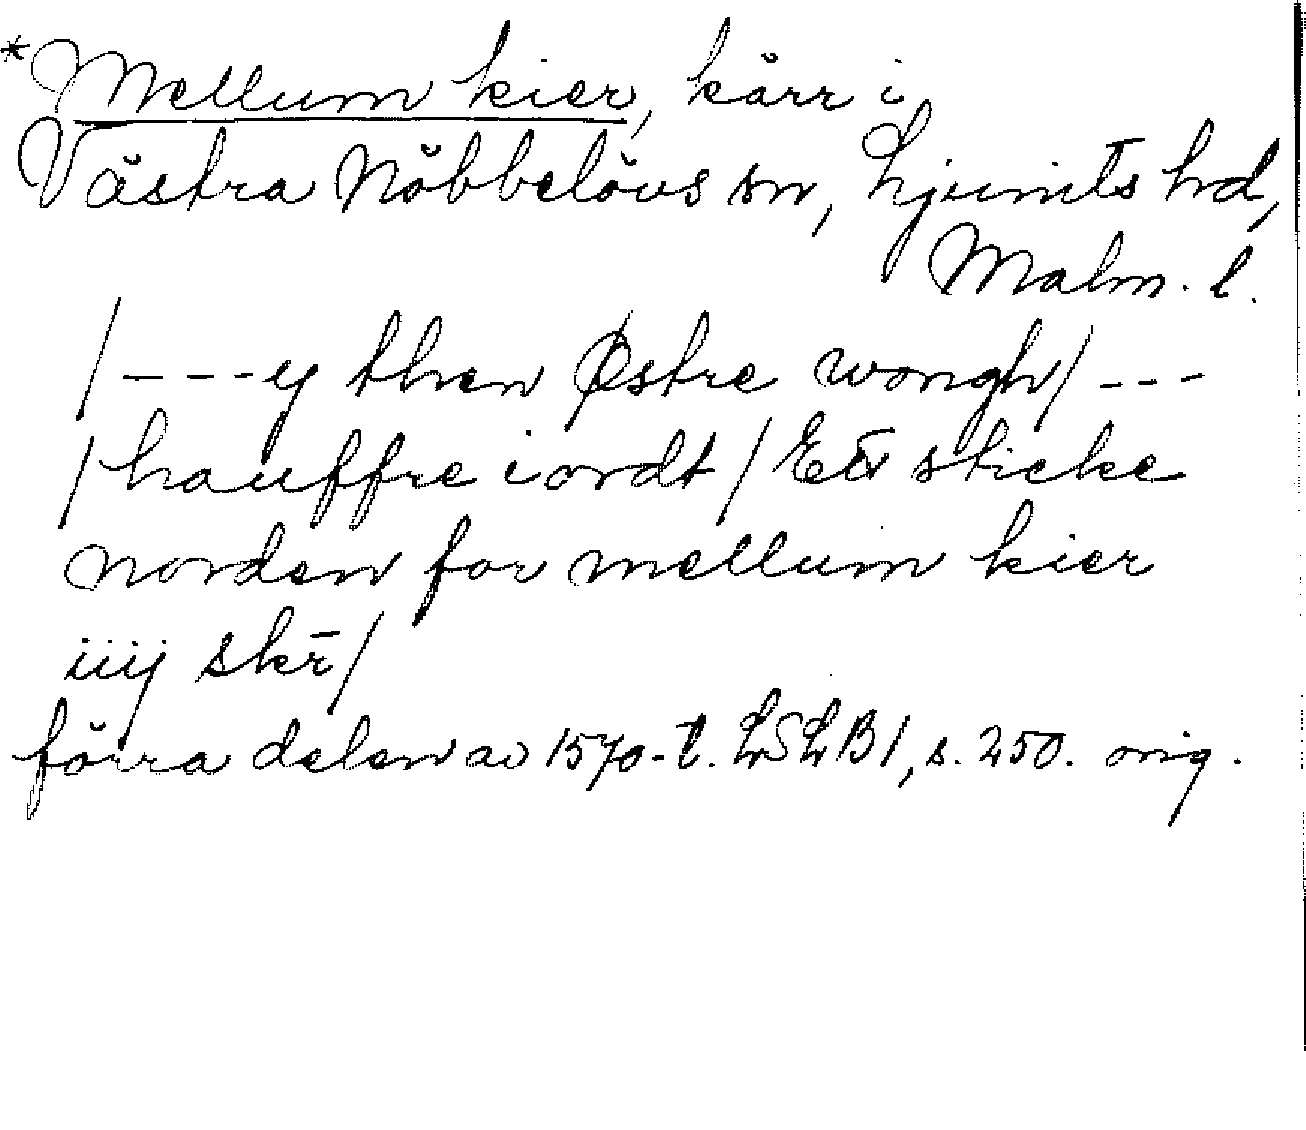 *Mellum kier, kärr i
Västra Nöbbelövs sn, Ljunits hd,
Malm. l.
/---y then Østre wongh/---
/hauffre iordt/Ett sticke
norden for mellum kier
iiij skr̄/
förra delen av 1570-t. LSLB1, s. 250. orig.